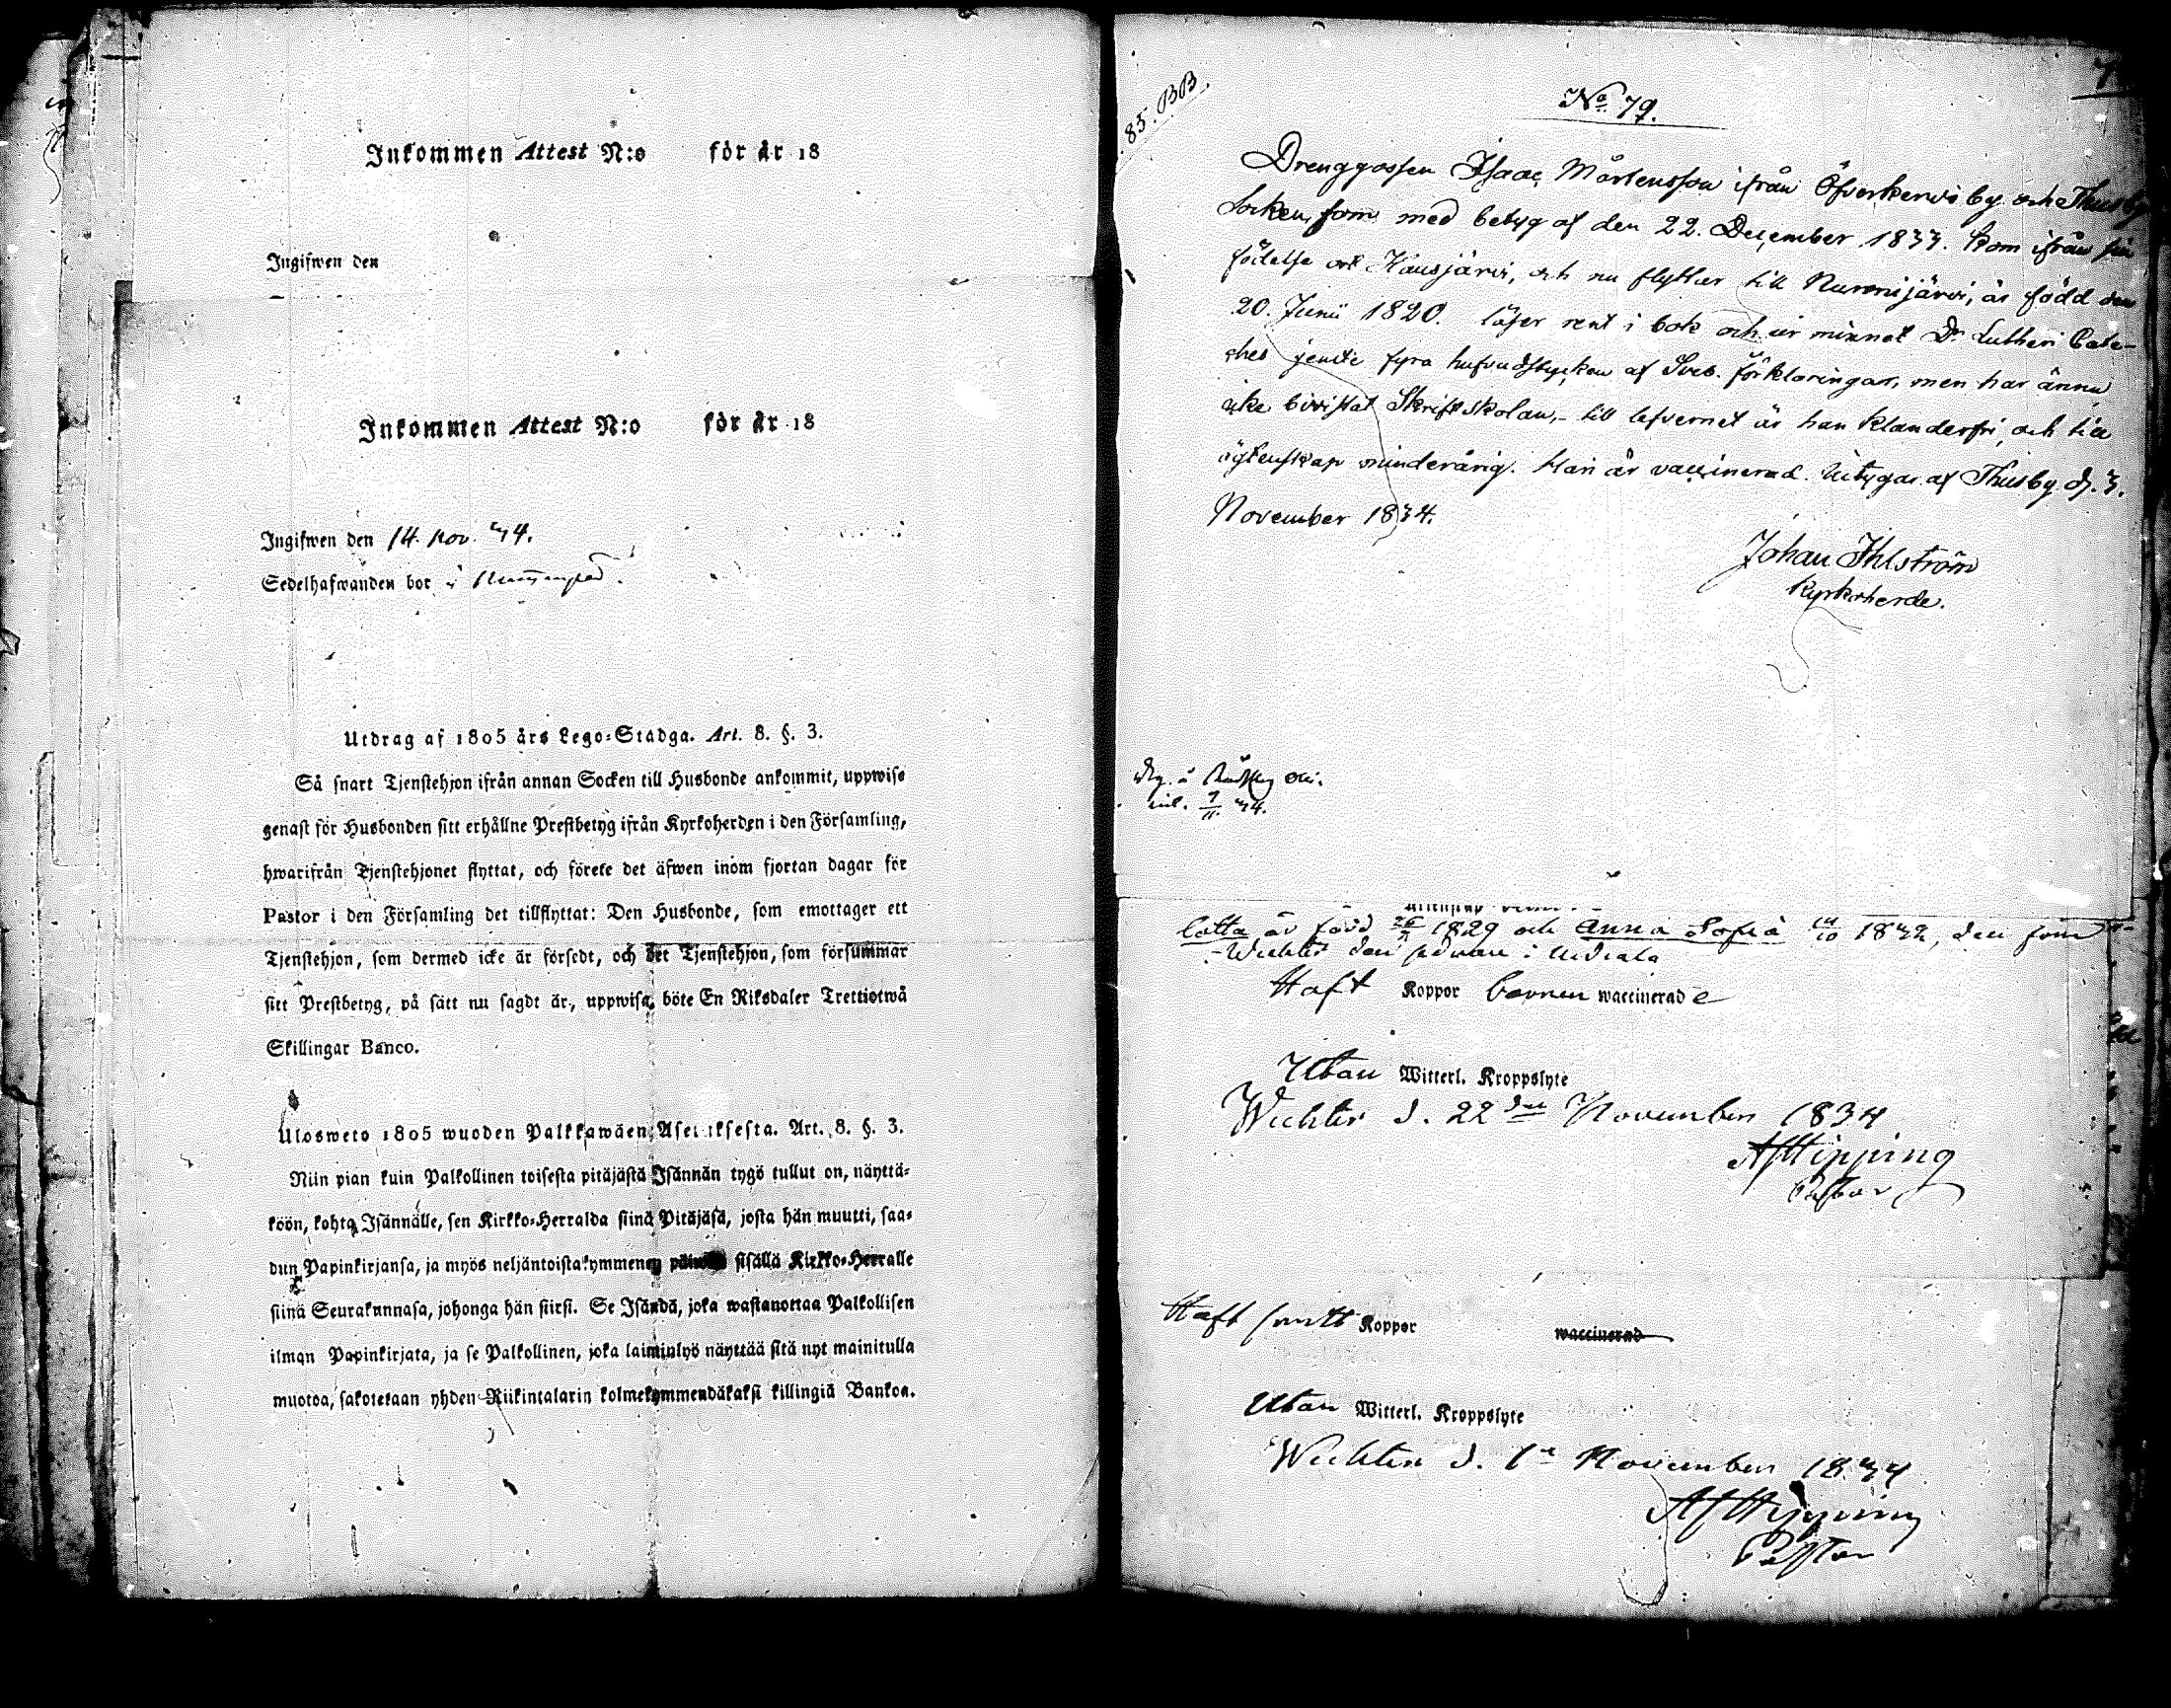 Inkommen Attest N:o för år 18
Ingifwen den
Inkommen Attest N:o för år 18
Ingifwen den 14. nov. 34.
Sedelhafwanden bor i
Utdrag af 1805 års Lego-Stadga. Art. 8. §. 3.
Så snart Tjenstehjon ifrån annan Socken till Husbonde ankommit, uppwise
genast för Husbonden sitt erhållne Prestbetyg ifrån Kyrkoherden i den Församling,
hwarifrån Tjenstehjonet flyttat, och förete det äfwen inom fjortan dagar för
Pastor i den Församling det tillflyttat: Den Husbonde, som emottager ett
Tjenstehjon, som dermed icke är försedt, och det Tjenstehjon, som försummar
sitt Prestbetyg, på sätt nu sagdt är, uppwisa, böte En Riksdaler Trettiotwå
Skillingar Banco.
Ulosweto 1805 wuoden Palkkawäen Asetuksesta. Art. 8. §. 3.
Niin pian kuin Palkollinen toisesta pitäjästä Isännän tygö tullut on, näyttä-
köön, kohta Isännälle, sen Kirkko-Herralda siinä Pitäjäsä, josta hän muutti, saa-
dun Papinkirjansa, ja myös neljäntoistakymmenen päiwän sisällä Kirkko-Herralle
siinä Seurakunnasa, johonga hän siirsi. Se Isändä, joka wastanottaa Palkollisen
ilman Papinkirjata, ja se Palkollinen, joka laiminlyö näyttää sitä nyt mainitulla
muotoa, sakotetaan yhden Riikintalarin kolmekymmendäkaksi killingiä Bankoa.
85. BB.
No 79.
Drenggossen Isaac Mårtensson ifrån Öfverkervo by och Thusby
Socken, som med betyg af den 22. December 1833. kom ifrån sin
födelse ort Hausjärvi, och nu flyttar till Nurmijärvi, är född den
20. Junii 1820. läser rent i bok och ur minnet Dr. Lutheri Cate-
ches jemte fyra hufvudstycken af Sveb. förklaringar, men har ännu
icke bivistat Skriftskolan, - till lefvernet är han klanderfri, och till
ägtenskap minderårig. Han är vaccinerad. Utbygar af Thusby d. 3.
November 1834.
Johan Ihlström
Kyrkoherde.
34.
Lotta är född 1829 och Anna Sofia 1832, den som
Wichtis den
Haft Koppor barnen waccinerade
Utan Witterl. Kroppslyte
Wichtis d. 22dre November 1834
AfHipping
Pastor
Haft Koppor waccinerad
Utan Witterl. Kroppslyte
Wichtis d. 1e November 1834
AfHipping
Pastor